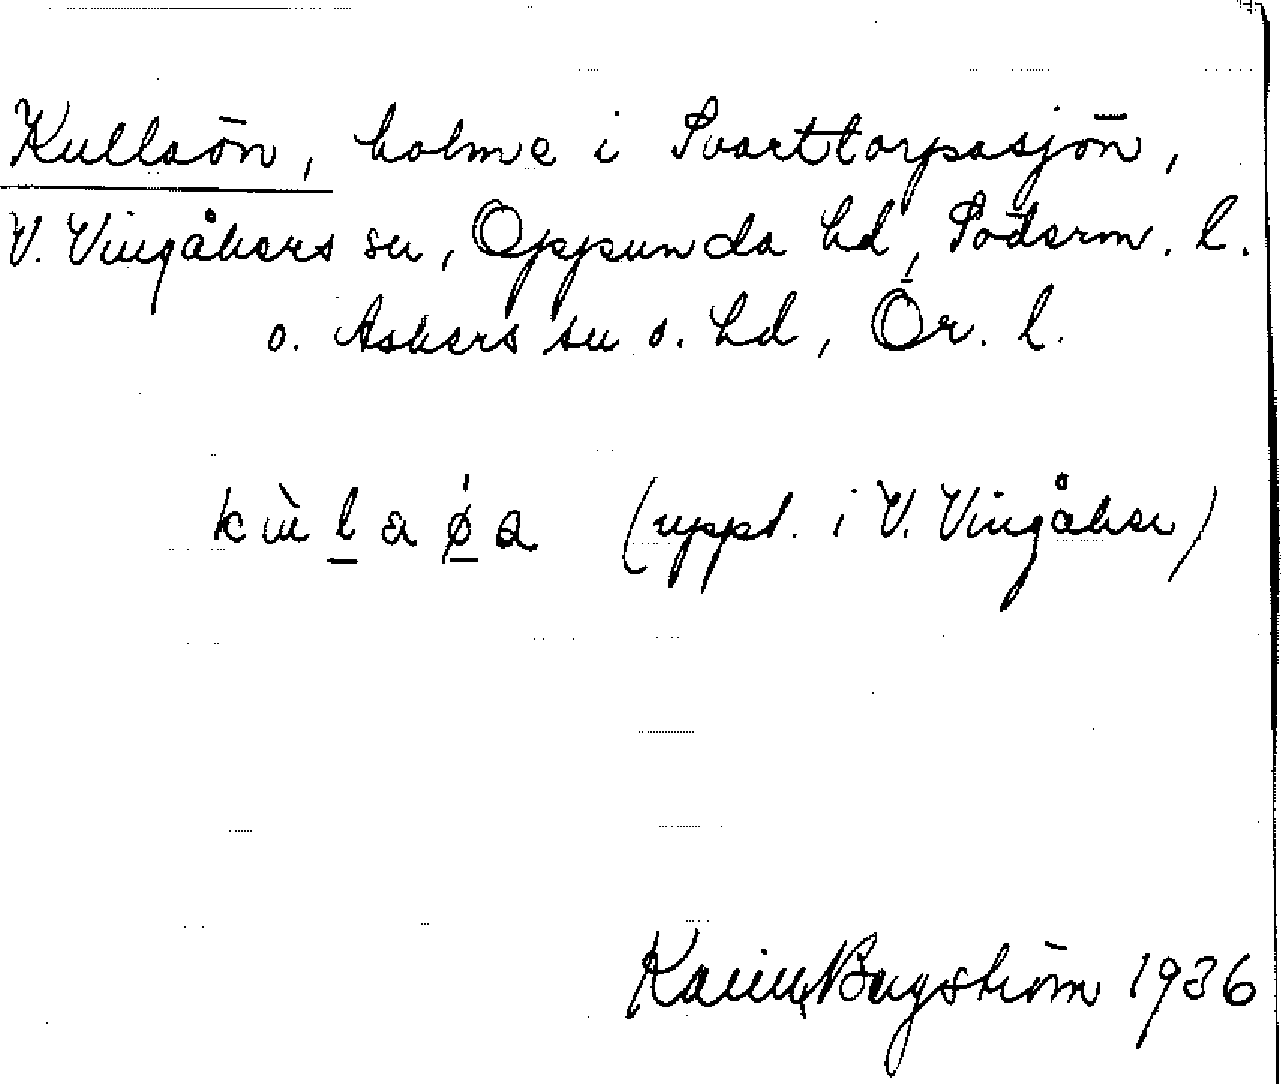 Kullaön, holme i Svarttorpasjön,
V. Vingåkers sn, Oppunda hd, Söderm. l.
o. Askers sn o. hd, Ör. l.
(uppt. i V. Vingåker)
Karin Bergström 1936